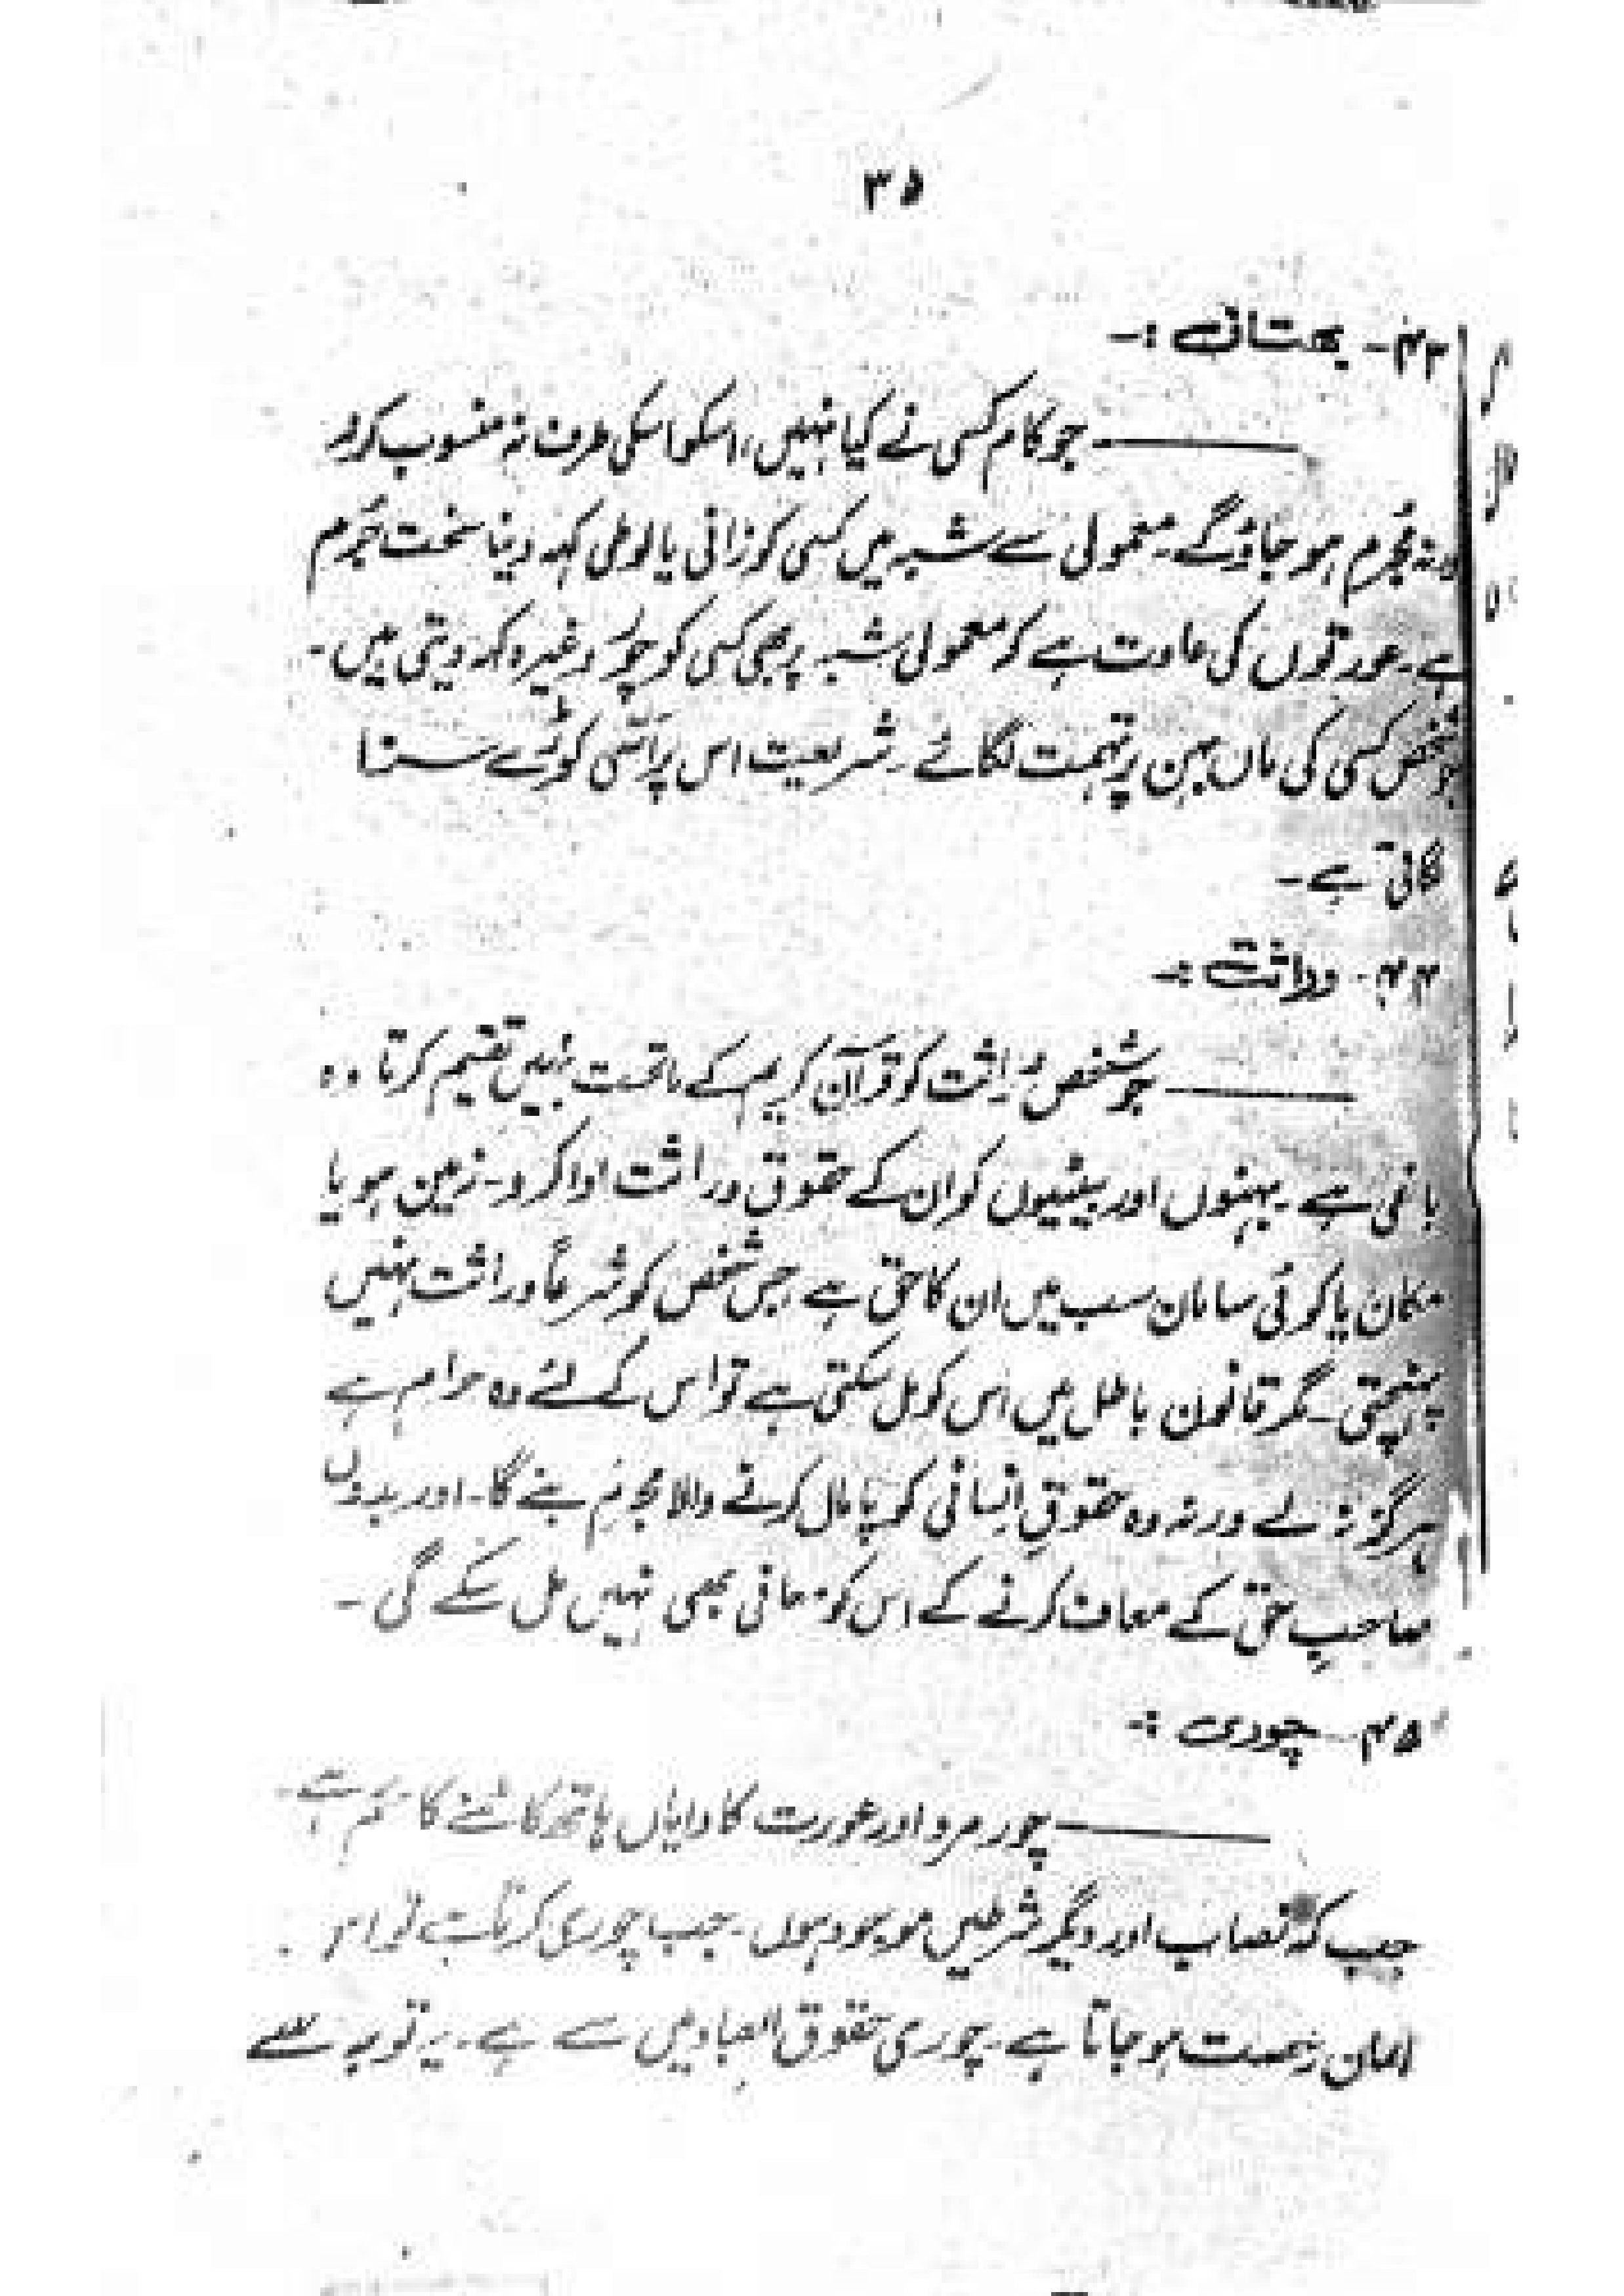 ۳۵
۴۳۔ بہتان :۔
جو کام کسی نے کیا نہیں، اسکو اسکی طرف نہ منسوب کرو
ورنہ مُجرم ہو جاؤ گے۔ معمولی سے شبہ میں کسی کو زانی یا لوطی کہہ دینا سخت جُرم
ہے۔ عورتوں کی عادت ہے کہ معمولی شبہ پر بھی کسی کو چور وغیرہ کہہ دیتی ہیں۔
جو شخص کسی کی ماں بہن پر تہمت لگائے۔ شریعت اس پر اَسّی کوڑے سزا
لگاتی ہے۔
۴۴۔ وراثت :۔
جو شخص وراثت کو قرآن کریم کے ماتحت نہیں تقسیم کرتا وہ
باغی ہے۔ بہنوں اور بیٹیوں کو ان کے حقوق وراثت ادا کرو۔ زمین ہو یا
مکان یا کوئی سامان سب میں ان کا حق ہے جس شخص کو شرعاً وراثت نہیں
پہنچتی۔ مگر قانون باطل میں اس کو مل سکتی ہے تو اس کے لئے وہ حرام ہے
ہرگز نہ لے ورنہ وہ حقوقِ انسانی کو پامال کرنے والا مجرم بنے گا۔ اور بدوں
صاحبِ حق کے معاف کرنے کے اس کو معافی بھی نہیں مل سکے گی۔
۴۵۔ چوری :۔
چور مرد اور عورت کا دایاں ہاتھ کاٹنے کا حکم ہے۔
جب کہ نصاب اور دیگر شرطیں موجود ہوں۔ جب چوری کرتا ہے تو اس
ایمان رخصت ہو جاتا ہے۔ چوری حقوق العباد میں سے ہے۔ یہ توبہ سے